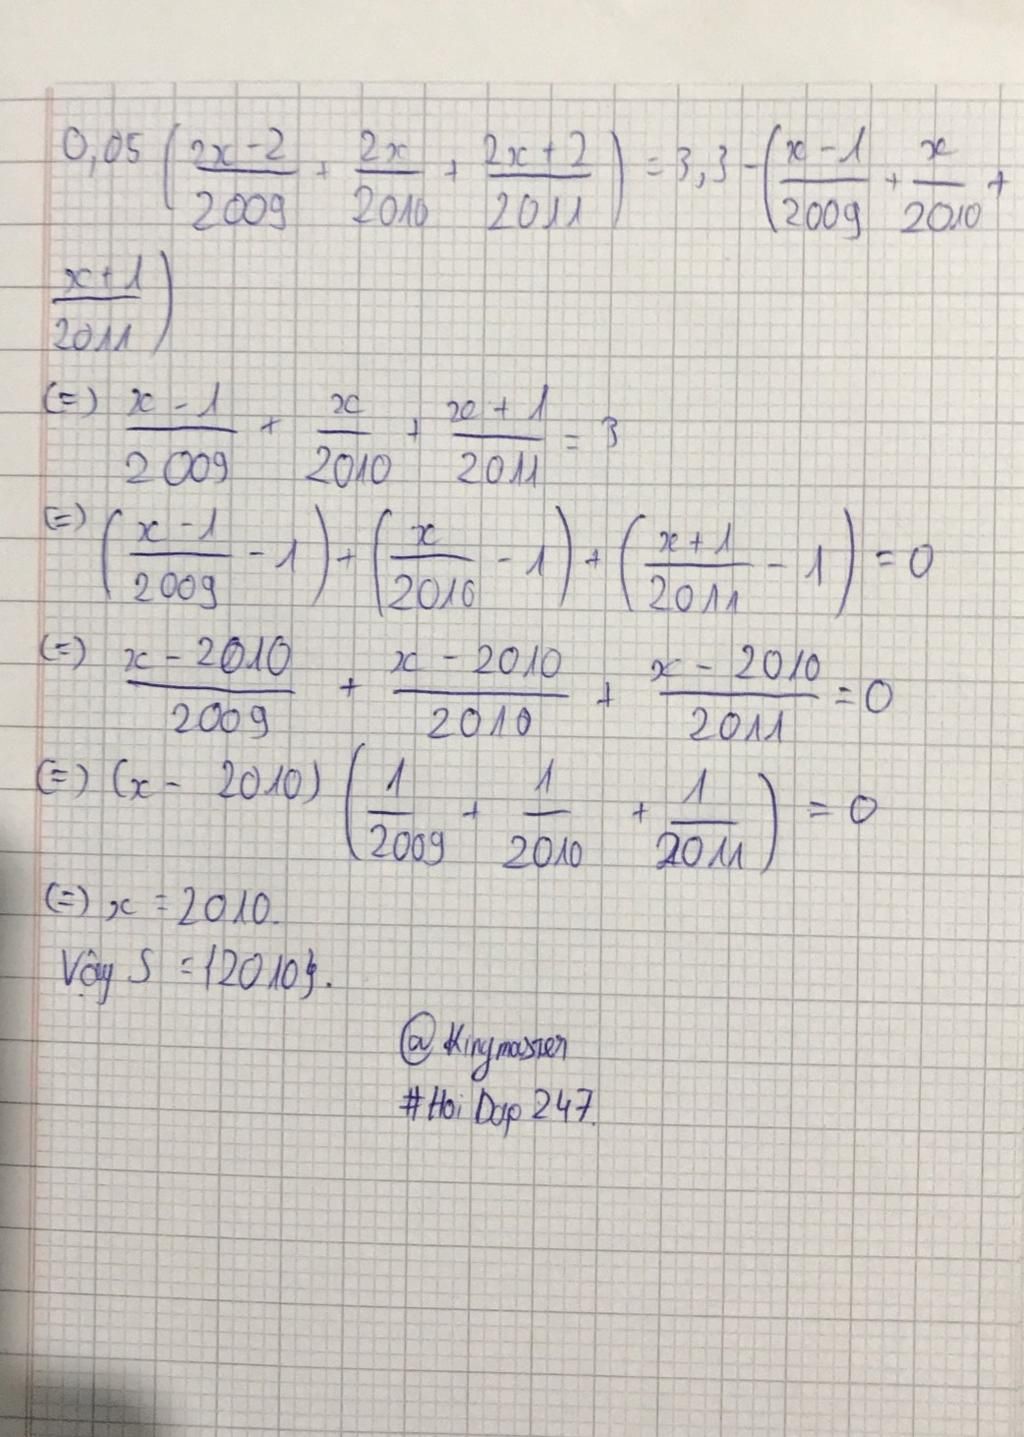 0,05 ( (2x-2)/2009 + 2x/2010 + (2x+2)/2011 ) = 3,3 - ( (x-1)/2009 + x/2010 +
(x+1)/2011 )
(=) (x-1)/2009 + x/2010 + (x+1)/2011 = 3
(=) ( (x-1)/2009 - 1 ) + ( x/2010 - 1 ) + ( (x+1)/2011 - 1 ) = 0
(=) (x-2010)/2009 + (x-2010)/2010 + (x-2010)/2011 = 0
(=) (x - 2010) ( 1/2009 + 1/2010 + 1/2011 ) = 0
(=) x = 2010.
Vậy S = {2010}.
@Kingmaster
#Hoi Dap 247.